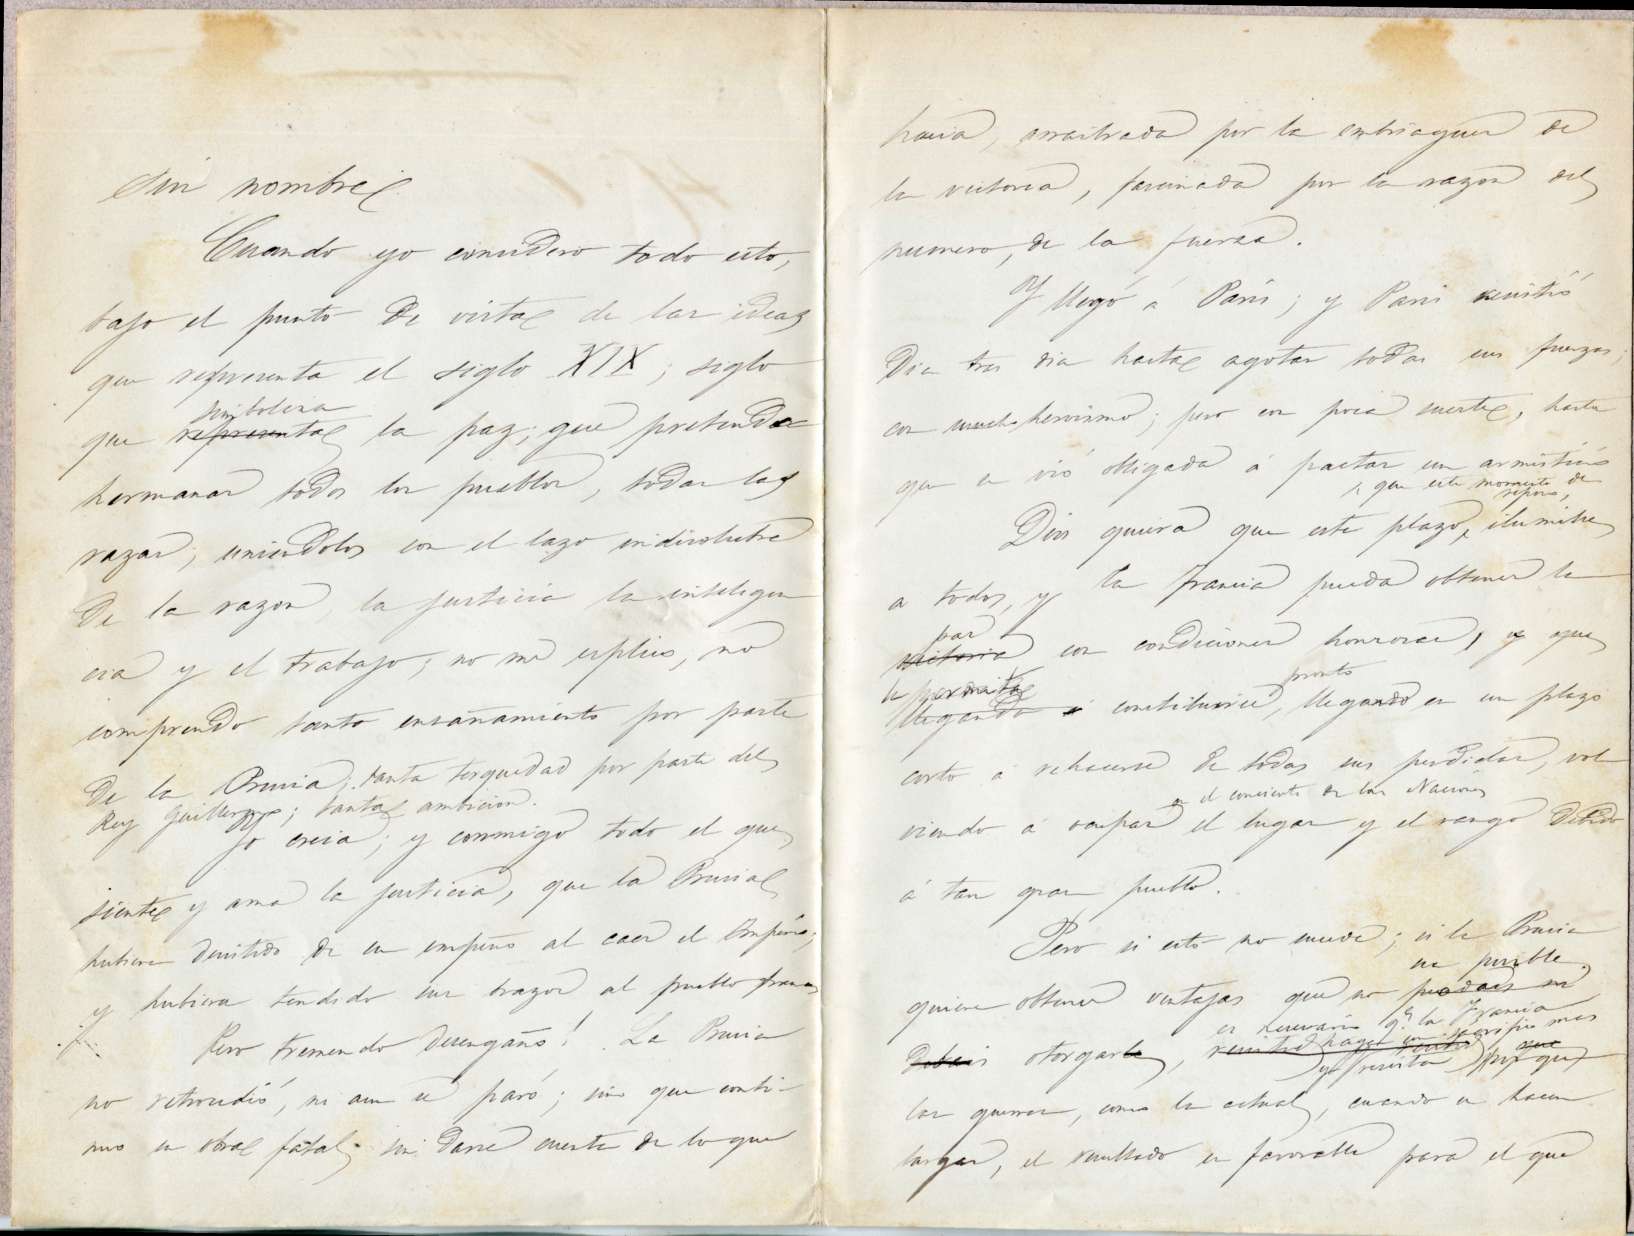 sin nombre.
Cuando yo considero todo esto,
bajo el punto de vista de las ideas
que representa el siglo XIX; siglo
simboliza
que representa la paz; que pretende
hermanar todos los pueblos, todas las
razas; uniendolos con el lazo indisoluble
de la razon, la justicia la inteligen
cia y el trabajo; no me esplico, no
comprendo tanto ensañamiento por parte
de la Prusia; tanta terquedad por parte del
Rey Guillermo; tanta ambicion.
Yo creia; y conmigo todo el que
siente y ama la justicia, que la Prusia
hubiera desistido de su empeño al caer el Imperio;
y hubiera tendido sus brazos al pueblo frances
Pero tremendo desengaño! La Prusia
no retrocedió, ni aun se paró; sino que conti-
nuo su obra fatal sin darse cuenta de lo que
hacia, arrastrada por la embriaguez de
la victoria, fascinada por la razon del
numero, de la fuerza.
Y llegó á Paris; y Paris resistió
dia tras dia hasta agotar todas sus fuerzas;
con mucho heroismo; pero con poca suerte, hasta
que se vió obligada á pactar un armisticio
y que este momento de
reposo,
Dios quiera que este plazo, ilumine
a todos, y la Francia pueda obtener la
paz
victoria con condiciones honrosas, y que
le permita pronto
llegando á constituirse, llegando en un plazo
corto á rehacerse de todas sus perdidas, vol
en el concierto de las Naciones
viendo á ocupar el lugar y el rango debido
á tan gran pueblo.
Pero si esto no sucede; si la Prusia
sea posible
quiere obtener ventajas que no podais ni
es necesario qe. la Francia
debais otorgarle, haga un sacrificio mas
y resista porque
las guerras, como la actual, cuando se hacen
largas, el resultado es favorable para el que